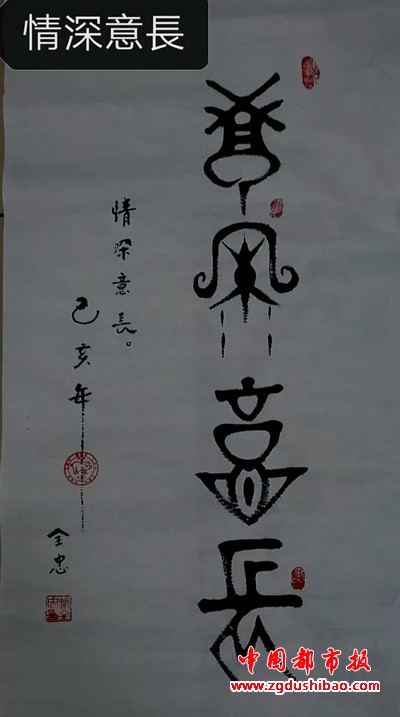 情深意長
情深意長
情深意長。
己亥年
全忠
中国都市报
www.zgdushibao.com